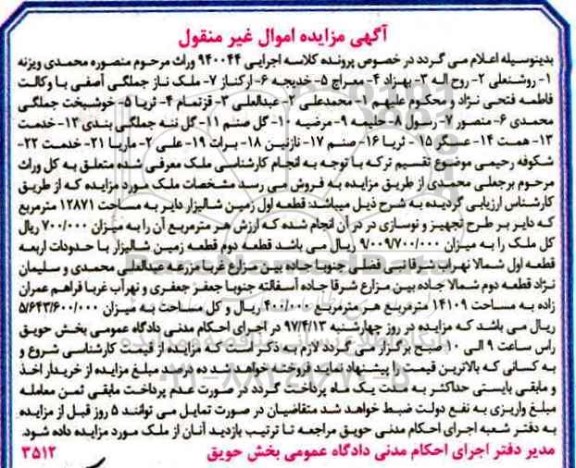 آگهی مزایده اموال غیر منقول
بدینوسیله اعلام می گردد در خصوص پرونده کلاسه اجرایی ۹۴۰۰۴۴ وراث مرحوم منصوره محمدی ویزنه
۱- روشنعلی ۲- روح اله ۳- بهزاد ۴- معراج ۵- خدیجه ۶- ارکناز ۷- ملک ناز جملگی آصفی با وکالت
فاطمه فتحی نژاد و محکوم علیهم ۱- محمدعلی ۲- عبدالعلی ۳- قزتمام ۴- ثریا ۵- خوشبخت جملگی
محمدی ۶- منصور ۷- رسول ۸- حلیمه ۹- مرضیه ۱۰- گل صنم ۱۱- گل ننه جملگی بندی ۱۳- خدمت
۱۳- همت ۱۴- عسکر ۱۵- ثریا ۱۶- صنم ۱۷- نازنین ۱۸- برات ۱۹- علی ۲۰- ماریا ۲۱- خدمت ۲۲-
شکوفه رحیمی موضوع تقسیم ترکه با توجه به انجام کارشناسی ملک معرفی شده متعلق به کل وراث
مرحوم برجعلی محمدی از طریق مزایده به فروش می رسد مشخصات ملک مورد مزایده که از طریق
کارشناس ارزیابی گردیده به شرح ذیل میباشد: قطعه اول زمین شالیزار دایر به مساحت ۱۲۸۷۱ مترمربع
که دایر بر طرح تجهیز و نوسازی در در آن انجام شده که ارزش هر مترمربع آن را به میزان ۷۰۰/۰۰۰ ریال
کل ملک را به میزان ۹/۰۰۹/۷۰۰/۰۰۰ ریال می باشد قطعه دوم قطعه زمین شالیزار با حدودات اربعه
قطعه اول شمالا نهراب شرقا نبی فضلی جنوبا جاده بین مزارع غربا مزرعه عبدالعلی محمدی و سلیمان
نژاد قطعه دوم شمالا جاده بین مزارع شرقا جاده آسفالته جنوبا جعفر جعفری و نهرآب غربا فراهم عمران
زاده به مساحت ۱۴۱۰۹ مترمربع هر مترمربع ۴۰۰/۰۰۰ ریال و کل مساحت به میزان ۵/۶۴۳/۶۰۰/۰۰۰
ریال می باشد که مزایده در روز چهارشنبه ۹۷/۴/۱۳ در اجرای احکام مدنی دادگاه عمومی بخش حویق
راس ساعت ۹ الی ۱۰ صبح برگزار می گردد لازم به ذکر است که مزایده از قیمت کارشناسی شروع و
به کسانی که بالاترین قیمت را پیشنهاد نماید فروخته خواهد شد ده درصد مبلغ مزایده از خریدار اخذ
و مابقی بایستی حداکثر به مدت یک ماه پرداخت گردد در صورت عدم پرداخت مابقی ثمن معامله
مبلغ واریزی به نفع دولت ضبط خواهد شد متقاضیان در صورت تمایل می توانند ۵ روز قبل از مزایده
به دفتر شعبه اجرای احکام مدنی حویق مراجعه تا ترتیب بازدید آنان از ملک مورد مزایده داده شود.
مدیر دفتر اجرای احکام مدنی دادگاه عمومی بخش حویق ۳۵۱۲